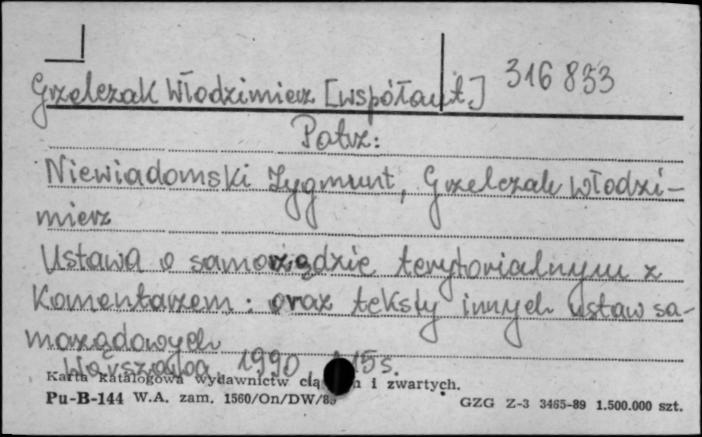 Grzelczak Włodzimierz [współaut.] 316 833
Patrz:
Niewiadomski Zygmunt, Grzelczak Włodzi-
mierz
Ustawa o samorządzie terytorialnym z
Komentarzem : oraz teksty innych ustaw sa-
morządowych
Warszawa 1990 15 s.
Karta katalogowa wydawnictw i zwartych.
Pu-B-144 W.A. zam. 1560/On/DW/89 GZG Z-3 3465-89 1.500.000 szt.